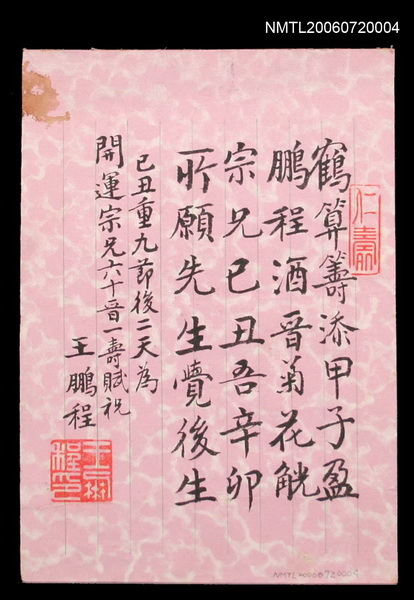 NMTL20060720004
鶴算籌添甲子盈
鵬程酒晉菊花觥
宗兄己丑吾辛卯
所願先生覺後生
己丑重九節後二天為
開運宗兄六十晉一壽賦祝
王鵬程
仁壽
NMTL20060720004